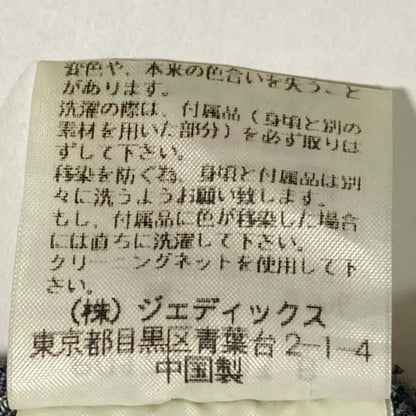 変色や、本来の色合いを失うこと
があります。
洗濯の際は、付属品（身頃と別の
素材を用いた部分）を必ず取りは
ずして下さい。
移染を防ぐ為、身頃と付属品は別
々に洗うようお願い致します。
もし、付属品に色が移染した場合
には直ちに洗濯して下さい。
クリーニングネットを使用して下
さい。
（株）ジェディックス
東京都目黒区青葉台2-1-4
中国製